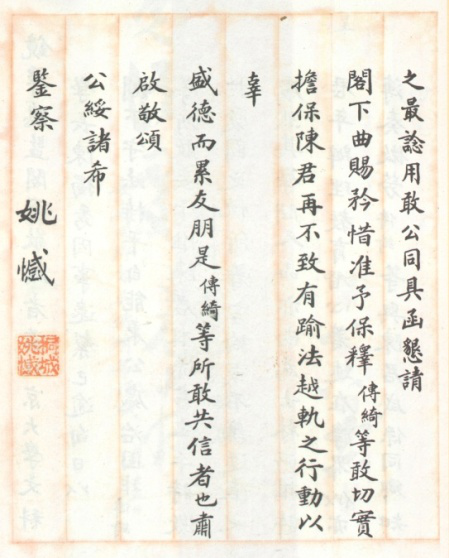 之最諗用敢公同具函懇請
閣下曲賜矜惜准予保釋傳綺等敢切實
擔保陳君再不致有踰法越軌之行動以
辜
盛德而累友朋是傳綺等所敢共信者也肅
啟敬頌
公綏諸希
鑒察
姚憾